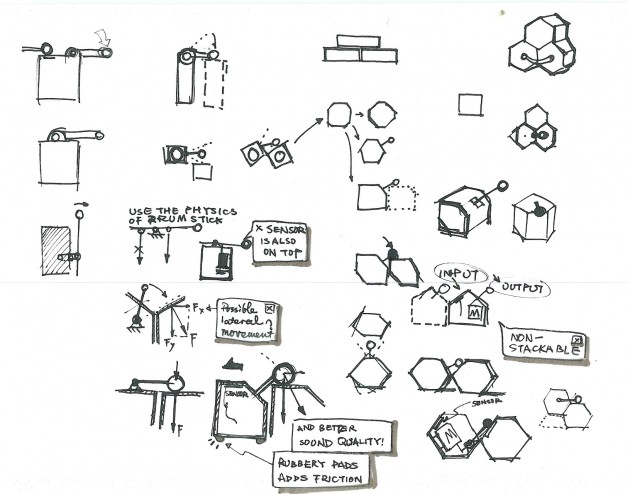 USE THE PHYSICS
OF DRUM STICK
X SENSOR
IS ALSO
ON TOP
X
INPUT
OUTPUT
M
Possible
lateral
movement
Fx
Fy
F
NON-
STACKABLE
SENSOR
F
AND BETTER
SOUND QUALITY!
RUBBERY PADS
ADDS FRICTION
SENSOR
M